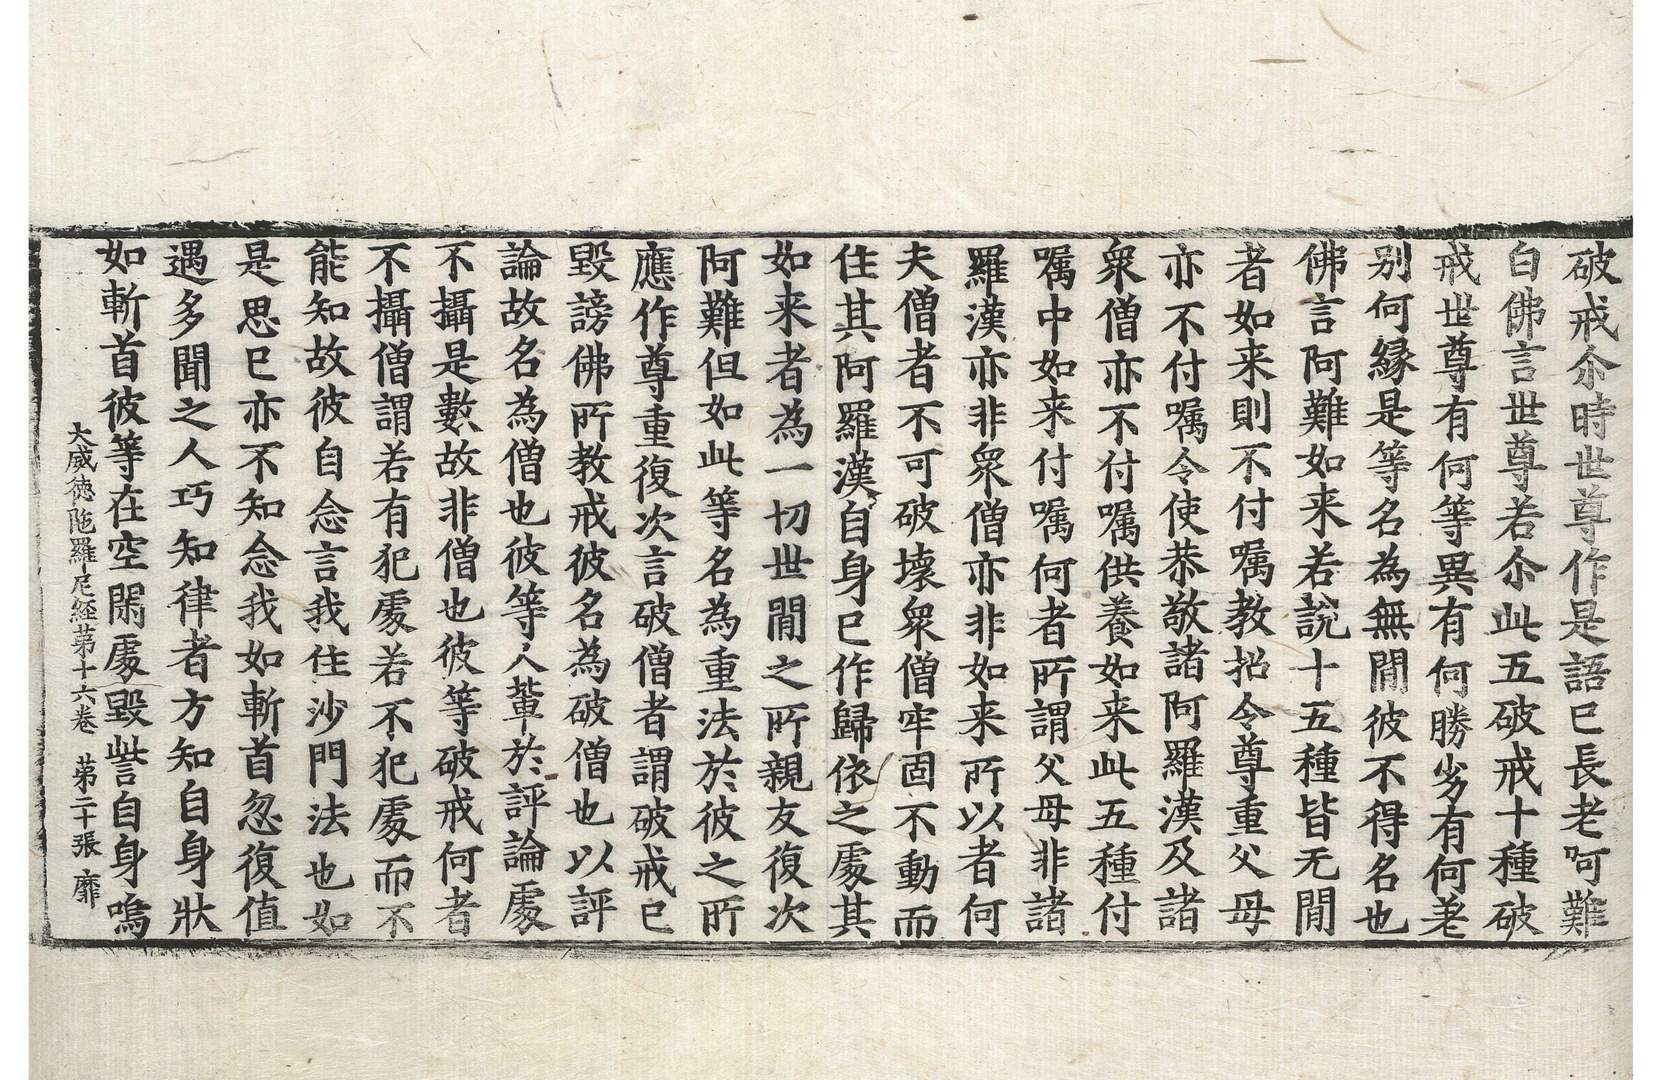 破戒尒時世尊作是語已長老呵難
白佛言世尊若尒此五破戒十種破
戒世尊有何等異有何勝劣有何差
別何縁是等名為無間彼不得名也
佛言阿難如来若說十五種皆无間
者如来則不付嘱教招令尊重父母
亦不付嘱令使恭敬諸阿羅漢及諸
衆僧亦不付嘱供養如来此五種付
嘱中如来付嘱何者所謂父母非諸
羅漢亦非衆僧亦非如来所以者何
夫僧者不可破壊衆僧牢固不動而
住其阿羅漢自身已作歸依之處其
如来者為一切世間之所親友復次
阿難但如此等名為重法於彼之所
應作尊重復次言破僧者謂破戒已
毀謗佛所教戒彼名為破僧也以評
論故名為僧也彼等人輩於評論處
不攝是數故非僧也彼等破戒何者
不攝僧謂若有犯處若不犯處而不
能知故彼自念言我住沙門法也如
是思已亦不知念我如斬首忽復值
遇多聞之人巧知律者方知自身狀
如斬首彼等在空閑處毀訾自身嗚
大威徳陁羅尼経第十六卷　第二十張　靡